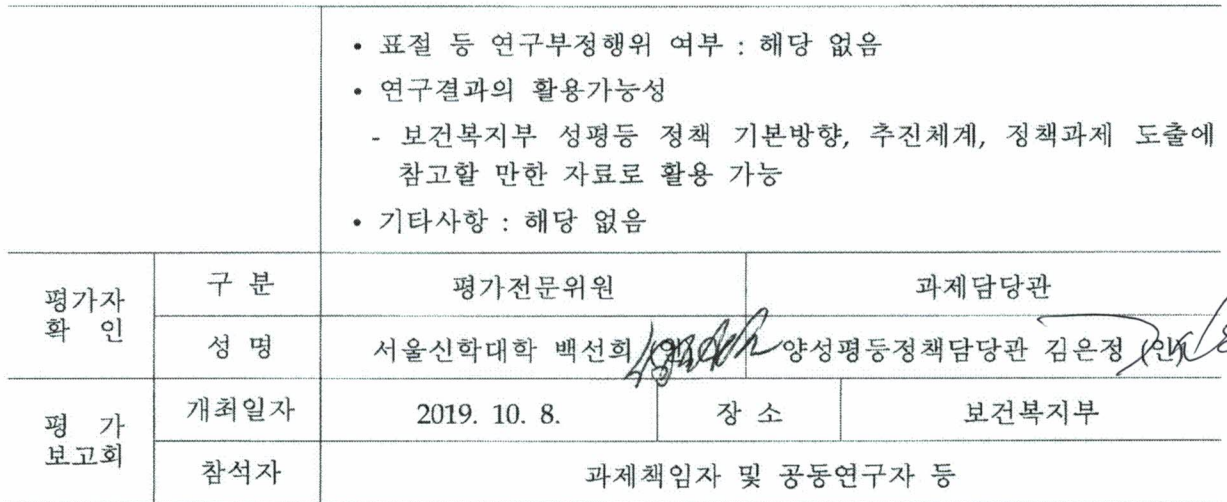 • 표절 등 연구부정행위 여부 : 해당 없음
• 연구결과의 활용가능성
- 보건복지부 성평등 정책 기본방향, 추진체계, 정책과제 도출에
참고할 만한 자료로 활용 가능
• 기타사항 : 해당 없음
평가자
확 인
구 분
평가전문위원
과제담당관
성 명
서울신학대학 백선희
양성평등정책담당관 김은정 인
평 가
보고회
개최일자
2019. 10. 8.
장 소
보건복지부
참석자
과제책임자 및 공동연구자 등